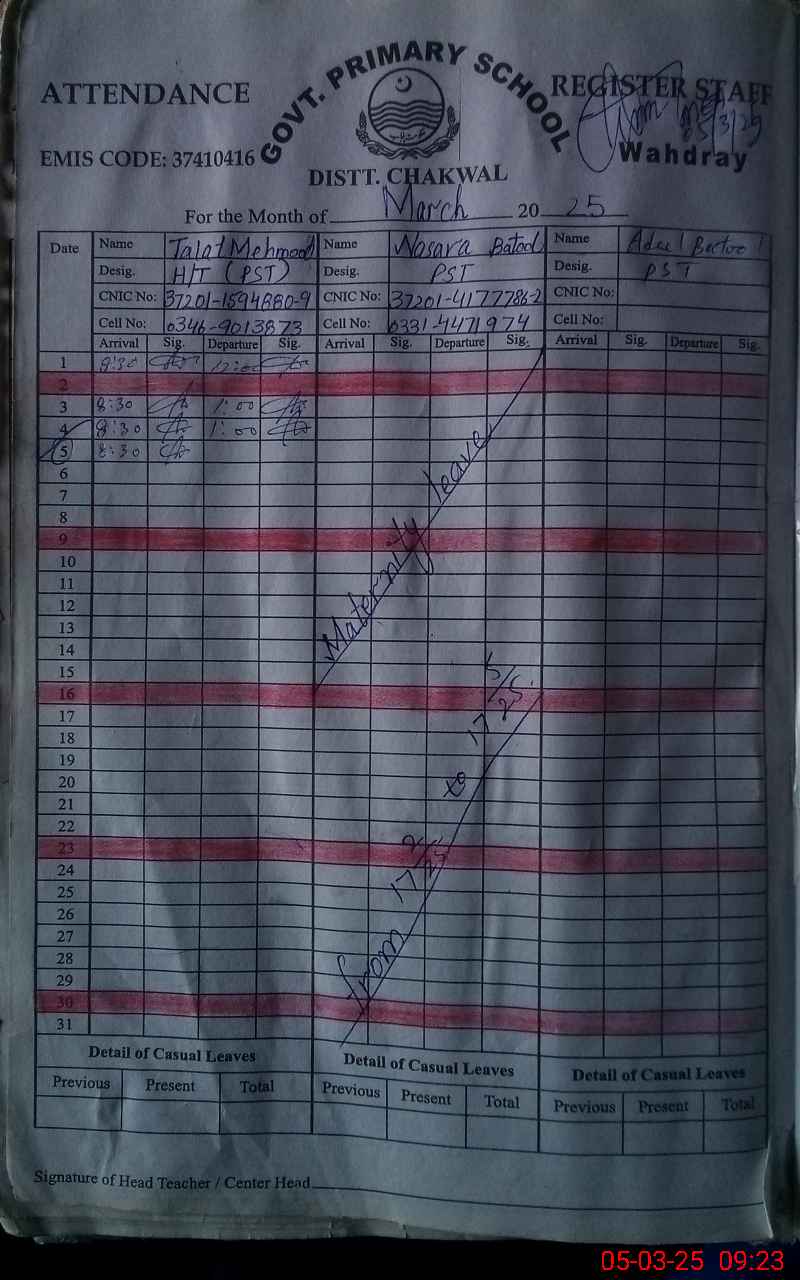 GOVT. PRIMARY SCHOOL
ATTENDANCE
REGISTER STAFF
5/3/25
EMIS CODE: 37410416
Wahdray
DISTT. CHAKWAL
For the Month of March 20 25
Date Name Talat Mehmood Name Batool Name
Desig. H/T (PST) Desig. PST Desig. PST
CNIC No: 37201-1594880-9 CNIC No: 37201-4177786-2 CNIC No:
Cell No: 0346-9013873 Cell No: 0331-4471974 Cell No:
Arrival Sig. Departure Sig. Arrival Sig. Departure Sig. Arrival Sig. Departure Sig.
1 12:00
2
3 8:30 1:00
4 8:30 1:00
5 8:30
6
7
8
9
10
11
12
13
14
15
16
17
18
19
20
21
22
23
24
25
26
27
28
29
30
31
Maternity leave
from 17/2/25 to 17/5/25
Detail of Casual Leaves Detail of Casual Leaves Detail of Casual Leaves
Previous Present Total Previous Present Total Previous Present Total
Signature of Head Teacher / Center Head
05-03-25 09:23